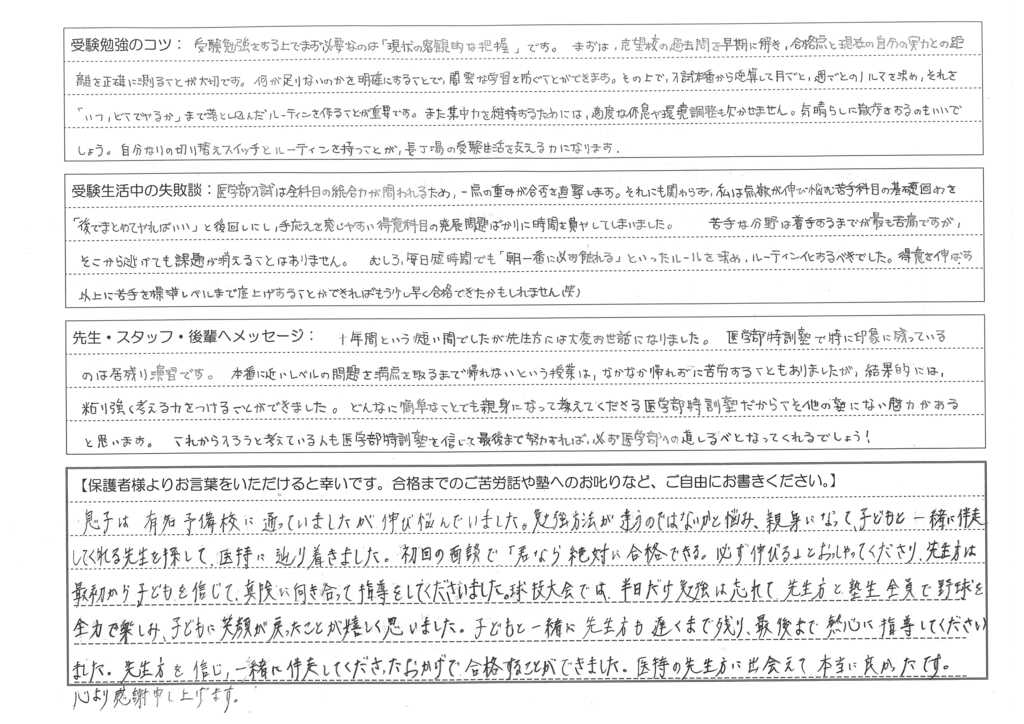 受験勉強のコツ： 受験勉強をする上でまず必要なのは「現状の客観的な把握」です。 まずは、志望校の過去問を早期に解き、合格点と現在の自分の実力との距
離を正確に測ることが大切です。何が足りないのかを明確にすることで、闇雲な学習を防ぐことができます。その上で、入試本番から逆算して月ごと、週ごとのノルマを決め、それを
「いつ、どこでやるか」まで落とし込んだルーティンを作ることが重要です。また集中力を維持するためには、適度な休息や環境調整も欠かせません。気晴らしに散歩をするのもいいで
しょう。自分なりの切り替えスイッチとルーティンを持つことが、長丁場の受験生活を支える力になります.
受験生活中の失敗談：医学部入試は全科目の総合力が問われるため、一点の重みが合否を直撃します。それにも関わらず、私は点数が伸び悩む苦手科目の基礎固めを
「後でまとめてやればいい」と後回しにし、手応えを感じやすい得意科目の発展問題ばかりに時間を費やしてしまいました。 苦手な分野は着手するまでが最も苦痛ですが、
そこから逃げても課題が消えることはありません。 むしろ、毎日短時間でも「朝一番に必ず触れる」といったルールを決め、ルーティン化するべきでした。得意を伸ばす
以上に苦手を標準レベルまで底上げすることができればもう少し早く合格できたかもしれません(笑)
先生・スタッフ・後輩へメッセージ： 十年間という短い間でしたが先生方には大変お世話になりました。 医学部特訓塾で特に印象に残っている
のは居残り演習です。 本番に近いレベルの問題を満点を取るまで帰れないという授業は、なかなか帰れずに苦労することもありましたが、結果的には、
粘り強く考える力をつけることができました。どんなに簡単なことでも親身になって教えてくださる医学部特訓塾だからこそ他の塾にない魅力がある
と思います。 これから入ろうと考えている人も医学部特訓塾を信じて最後まで努力すれば、必ず医学部への道しるべとなってくれるでしょう!
【保護者様よりお言葉をいただけると幸いです。合格までのご苦労話や塾へのお叱りなど、ご自由にお書きください。】
息子は 有名予備校に通っていましたが 伸び悩んでいました。勉強方法が違うのではないかと悩み、親身になって、子どもと一緒に伴走
してくれる先生を探して、医特に辿り着きました。初回の面談で「君なら絶対に合格できる。必ず伸びる」とおっしゃってくださり、先生方は
最初から子どもを信じて、真険に向き合って指導をしてくださいました。球技大会では、半日だけ勉強は忘れて先生方と塾生全員で野球を
全力で楽しみ、子どもに笑顔が戻ったことが嬉しく思いました。子どもと一緒に先生方も遅くまで残り、最後まで熱心に指導してください
ました。先生方を信じ、一緒に伴走してくださったおかげで合格することができました。医特の先生方に出会えて本当に良かったです。
心より感謝申し上げます。